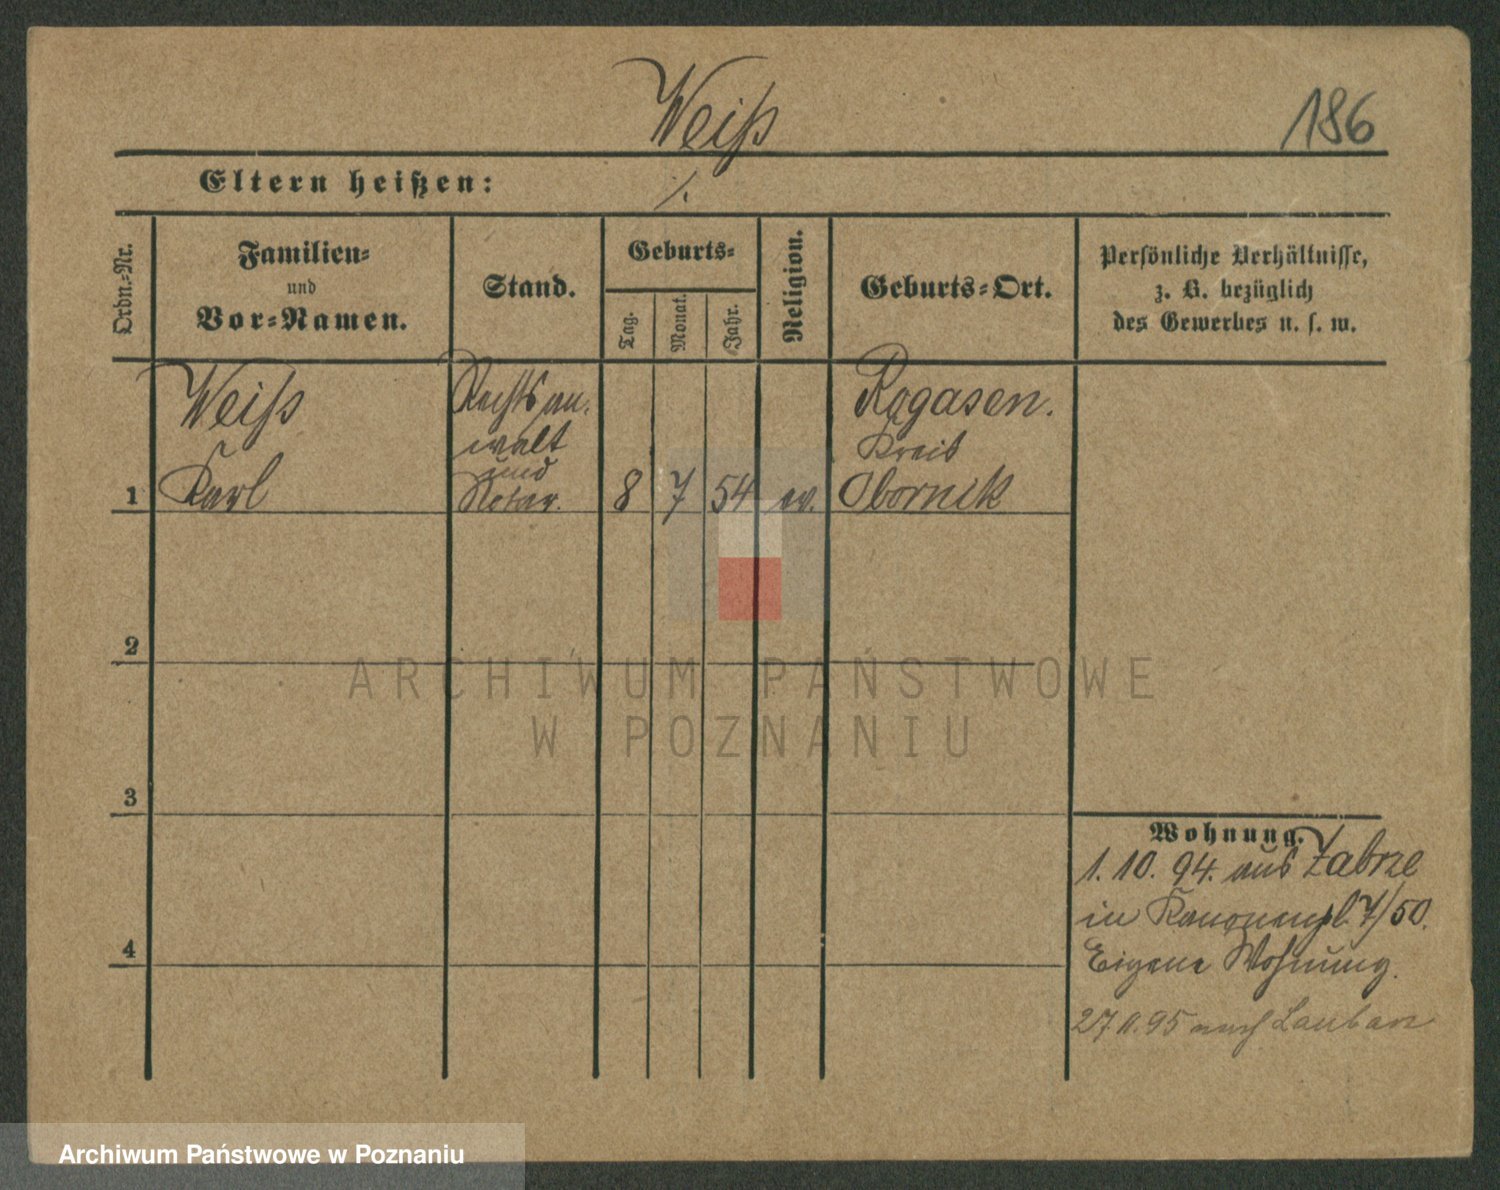 Weiß
186
Eltern heißen: ⁒
Ordn.-Nr.
Familien-
und
Vor-Namen.
Stand.
Geburts-
Tag.
Monat.
Jahr.
Religion.
Geburts-Ort.
Persönliche Verhältnisse,
z. B. bezüglich
des Gewerbes u. s. w.
Weiß
Karl
Rechtsan.
walt
und
Notar.
1
8
7
54
ev.
Rogasen.
Kreis
Obornik
2
3
4
Wohnung.
1. 10. 94. aus Zabrze
in Kanonenpl. 7/50.
Eigene Wohnung.
nach Lauban
ARCHIWUM PAŃSTWOWE
W POZNANIU
Archiwum Państwowe w Poznaniu